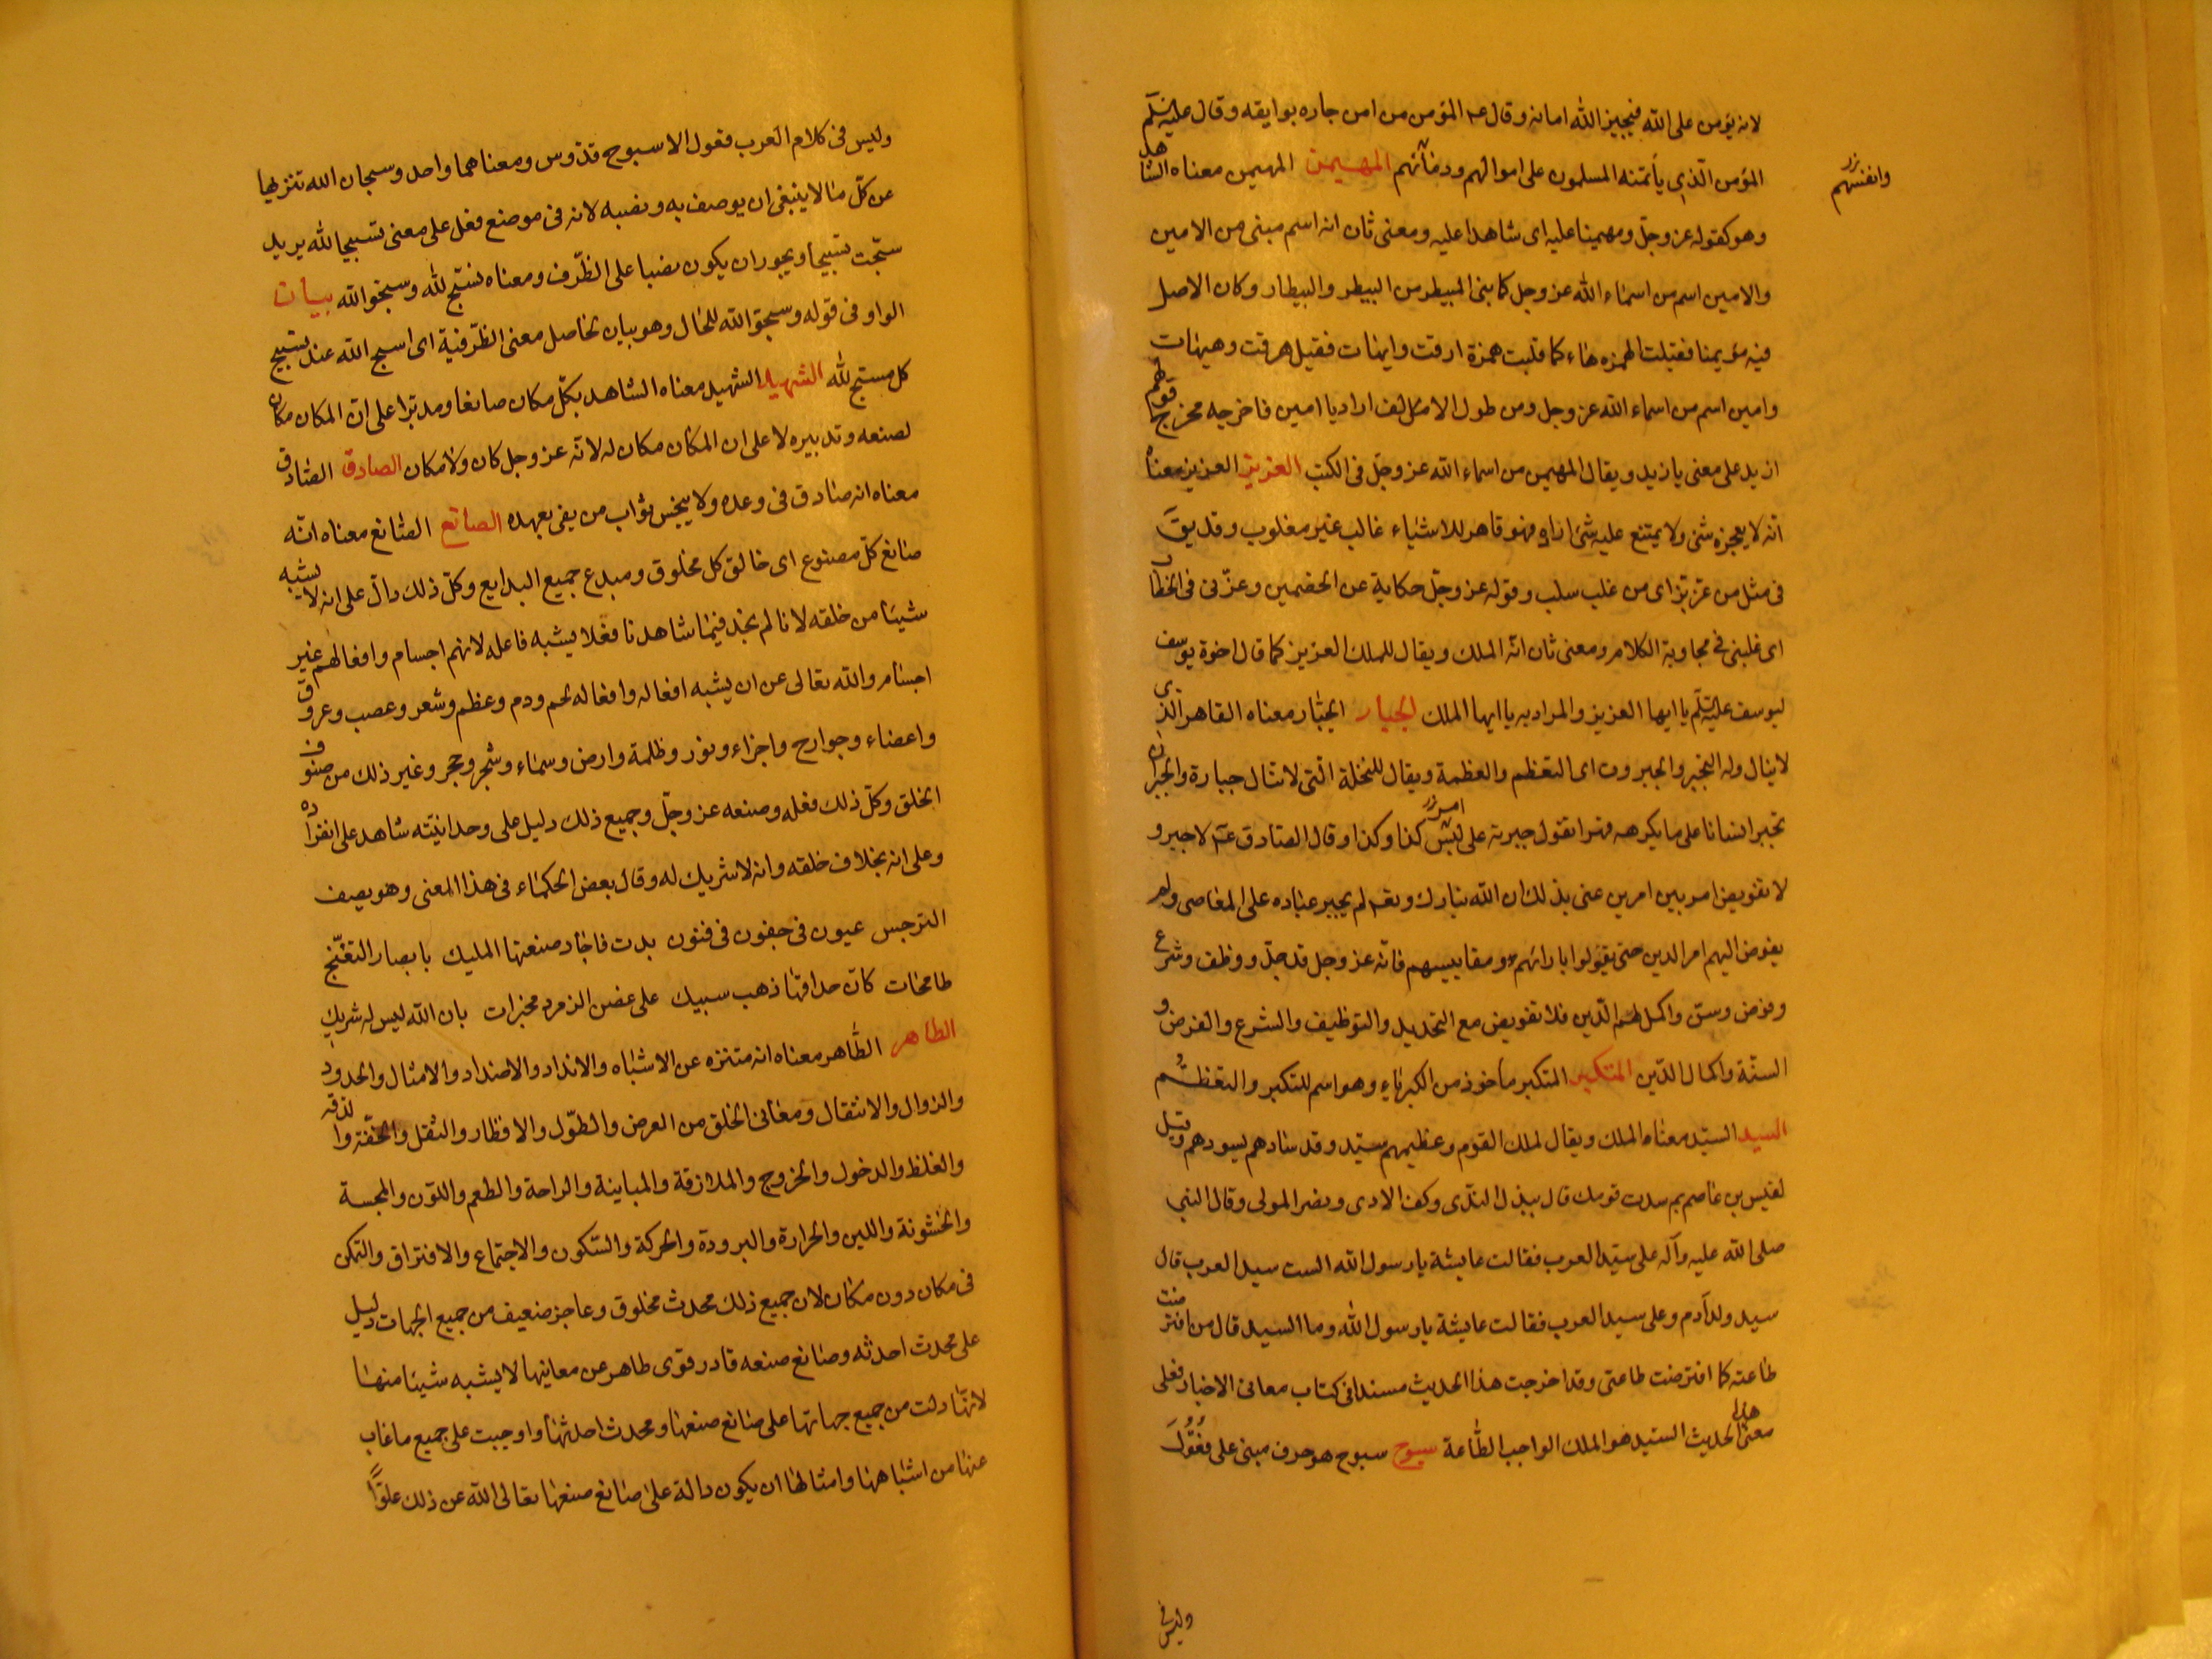 لانه يؤمن على الله فيجيز الله امانه وقال عم المؤمن من امن جاره بوايقه وقال عليه السلم
المؤمن الذي يأتمنه المسلمون على اموالهم ودمائهم المهيمن المهيمن معناه الشاهد
وانفسهم
وهو كقوله عز وجل ومهيمنا عليه اى شاهدا عليه ومعنى ثان انه اسم مبنى من الامين
والامين اسم من اسماء الله عز وجل كما بنى المبيطر من البيطر والبيطار وكان الاصل
فيه مؤيمنا فقبلت الهمزه هاء كما قلبت همزة ارقت وايهات فقيل هرقت وهيهات
وامين اسم من اسماء الله عز وجل ومن طول الالف اراد يا امين فاخرجه مخرج قولهم
ازيد على معنى يا زيد ويقال المهيمن من اسماء الله عز وجل فى الكتب العزيز العزيز معناه
انه لا يعجزه شئ ولا يمتنع عليه شئ اراده فهو قاهر للاشياء غالب غير مغلوب وقد يق
فى مثل من عز بز اى من غلب سلب وقوله عز وجل حكاية عن الخصمين وعزنى فى الخطاب
اى غلبنى فى مجاوبة الكلام ومعنى ثان انه الملك ويقال للملك العزيز كما قال اخوة يوسف
ليوسف عليه السلم يا ايها العزيز والمراد به يا ايها الملك الجبار الجبار معناه القاهر الذى
لا ينال وله التجبر والجبروت اى التعظم والعظمة ويقال للنخلة التى لا تنال جبارة والجبر ان
تجبر انسانا على ما يكرهه قهرا تقول جبرته على امر ليس كذا وكذا وقال الصادق عم لا جبر و
لا تفويض امر بين امرين عنى بذلك ان الله تبارك وتعم لم يجبر عباده على المعاصى ولم
يفوض اليهم امر الدين حتى يقولوا بارائهم ومقاييسهم فانه عز وجل قد حد ووظف وشرع
وفرض وسن واكمل لهم الدين فلا تفويض مع التحديد والتوظيف والشرع والفرض و
السنة واكمال الدين المتكبر المتكبر مأخوذ من الكبرياء وهو اسم للتكبر والتعظم
السيد السيد معناه الملك ويقال لملك القوم وعظيمهم سيد وقد سادهم يسودهم وقيل
لقيس بن عاصم بم سدت قومك قال ببذل الندى وكف الاذى ونصر المولى وقال النبى
صلى الله عليه وآله على سيد العرب فقالت عايشة يا رسول الله الست سيد العرب قال
سيد ولد آدم وعلى سيد العرب فقالت عايشة يا رسول الله وما السيد قال من افترضت
طاعته كما افترضت طاعتى وقد اخرجت هذا الحديث مسندا فى كتاب معانى الاخبار فعلى
معنى هذا الحديث السيد هو الملك الواجب الطاعة سبوح سبوح هو حرف مبنى على فعول
وليس فى
وليس فى كلام العرب فعول الا سبوح قدوس ومعناهما واحد وسبحان الله تنزيها
عن كل ما لا ينبغى ان يوصف به ونصبه لانه فى موضع فعل على معنى تسبيحا لله يريد
سبحت تسبيحا ويجوز ان يكون نصبا على الظرف ومعناه نسبح لله وسبحوا الله بيان
الواو فى قوله وسبحوا الله للحال وهو بيان لحاصل معنى الظرفية اى اسبح الله عند تسبيح
كل مسبح لله الشهيد الشهيد معناه الشاهد بكل مكان صانعا ومدبرا على ان المكان مكان
لصنعه وتدبيره لا على ان المكان مكان له لانه عز وجل كان ولا مكان الصادق الصادق
معناه انه صادق فى وعده ولا يبخس ثواب من يفى بعهده الصانع الصانع معناه انه
صانع كل مصنوع اى خالق كل مخلوق ومبدع جميع البدايع وكل ذلك دال على انه لا يشبه
شيئا من خلقه لانا لم نجد فيما شاهدنا فعلا يشبه فاعله لانهم اجسام وافعالهم غير
اجسام والله تعالى عن ان يشبه افعاله وافعاله لحم ودم وعظم وشعر وعصب وعروق
واعضاء وجوارح واجزاء ونور وظلمة وارض وسماء وشجر وحجر وغير ذلك من صنوف
الخلق وكل ذلك فعله وصنعه عز وجل وجميع ذلك دليل على وحدانيته شاهد على انفراده
وعلى انه بخلاف خلقه وانه لا شريك له وقال بعض الحكماء فى هذا المعنى وهو يصف
النرجس عيون فى جفون فى فنون بدت فاجاد صنعتها المليك بابصار التغنج
طامحات كان حداقها ذهب سبيك على غصن الزمرد مخبرات بان الله ليس له شريك
الطاهر الطاهر معناه انه متنزه عن الاشباه والانداد والاضداد والامثال والحدود
والزوال والانتقال ومعانى الخلق من العرض والطول والاقطار والثقل والخفة والدقة
والغلظ والدخول والخروج والملازقة والمباينة والراحة والطعم واللون والمجسة
والخشونة واللين والحرارة والبرودة والحركة والسكون والاجتماع والافتراق والتمكن
فى مكان دون مكان لان جميع ذلك محدث مخلوق وعاجز ضعيف من جميع الجهات دليل
على محدث احدثه وصانع صنعه قادر قوى طاهر عن معانيها لا يشبه شيئا منها
لانها دلت من جميع جهاتها على صانع صنعها ومحدث احدثها واوجبت على جميع ما غاب
عنها من اشباهها وامثالها ان يكون دالة على صانع صنعها تعالى الله عن ذلك علوا